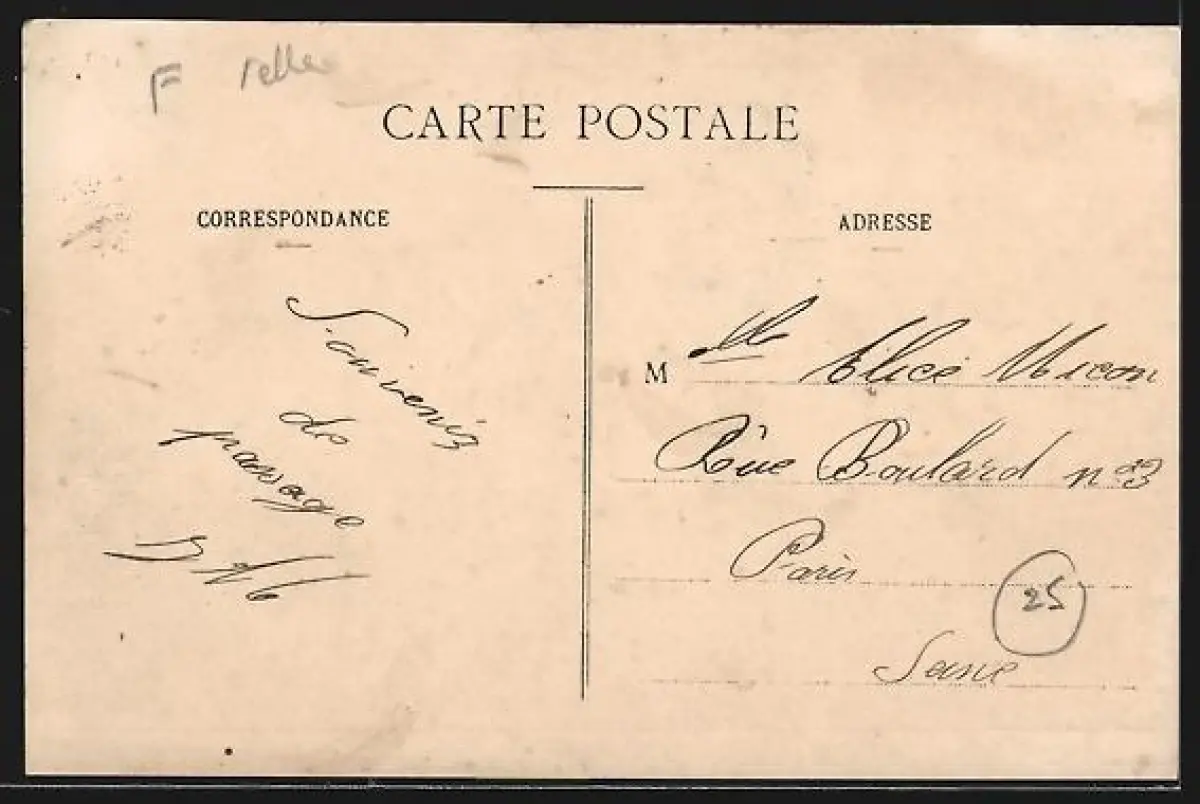 F
CARTE POSTALE
CORRESPONDANCE
Souvenir
de
passage
ADRESSE
M lle Elice Micon
Rue Boulard n° 23
Paris
25
Seine